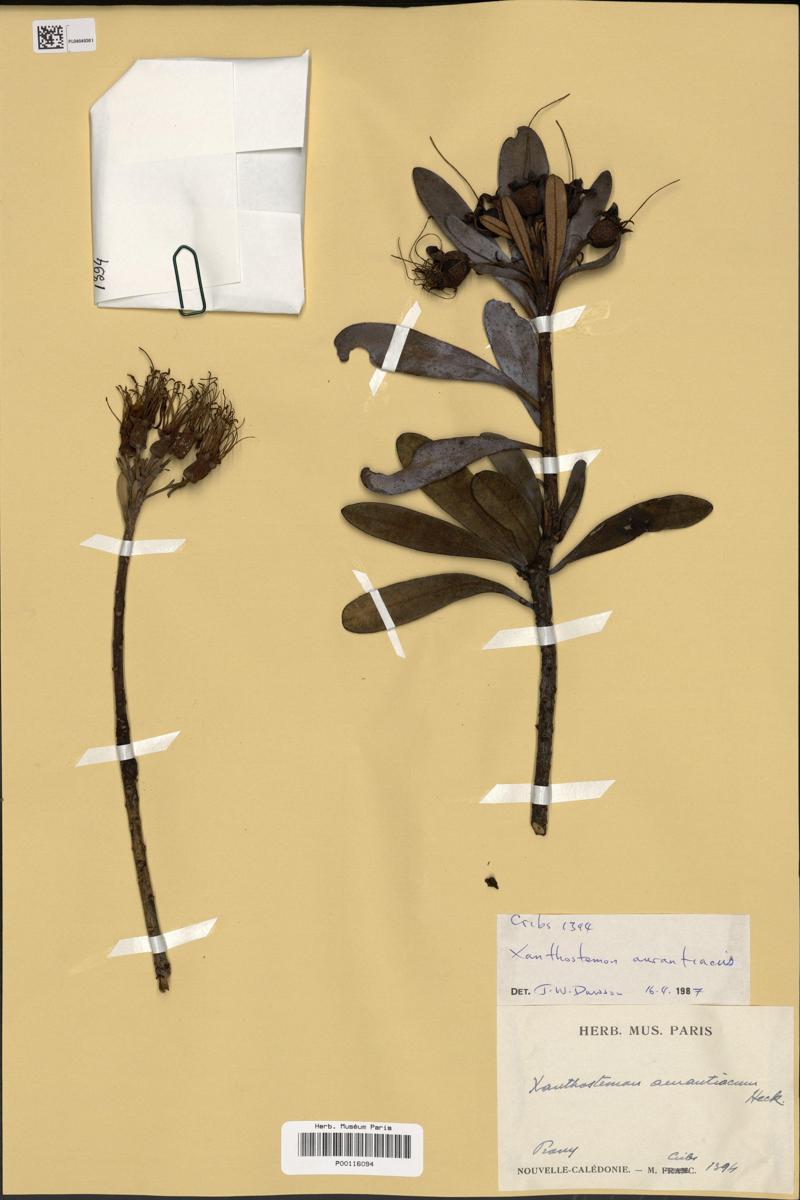 PL0404S361
1394
Cribs 1394
Xanthostemon aurantiacus
DET. J. W. Dawson 16.4.1987
HERB. MUS. PARIS
Xanthostemon aurantiacum
Heck.
Prony
Cribs
NOUVELLE-CALÉDONIE. — M. FRANC. 1394
Herb. Muséum Paris
P00116094